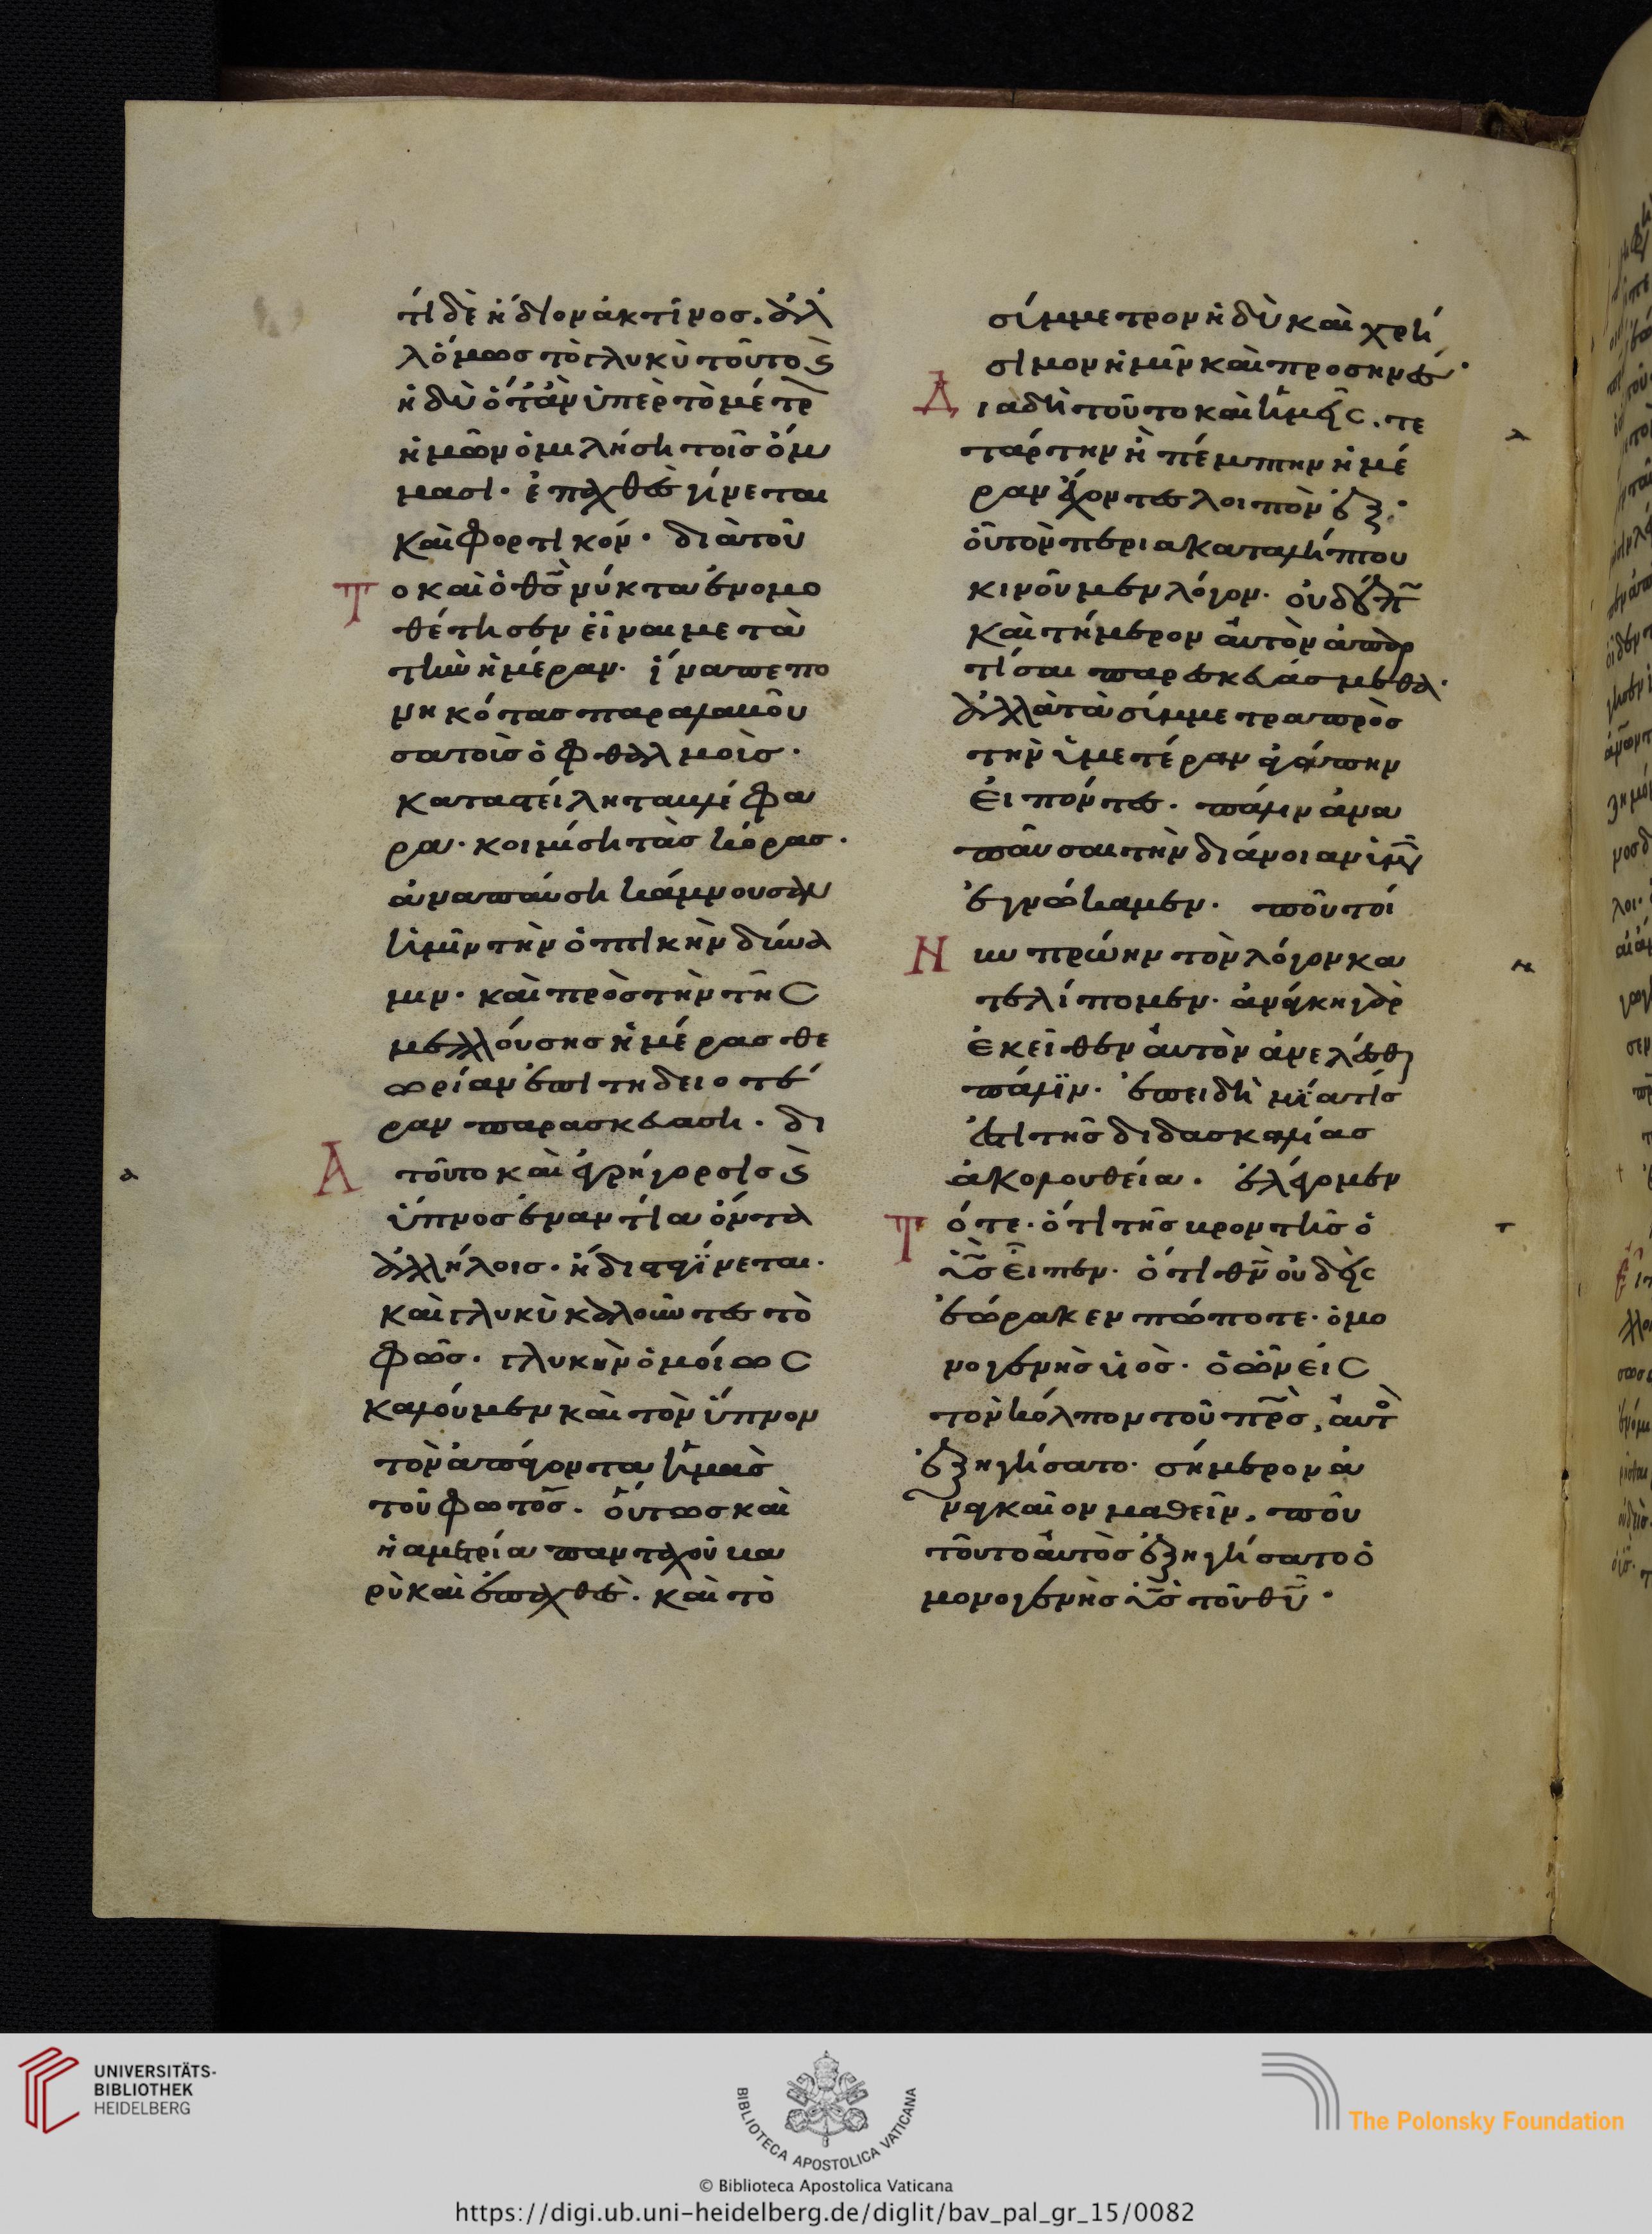 τί δὲ ἥδιον ἀκτῖνος. ἀλ
λ' ὅμως τὸ γλυκὺ τοῦτο ϗ
ἡδὺ ὅταν ὑπὲρ τὸ μέτρ
ἡμῶν ὁμιλήση τοῖς ὄμ
μασι· ἐπαχθὲς γίνεται
καὶ φορτικόν· διὰ τοῦ
το καὶ ὁ θς νύκτα ἐνομο
θέτησεν εἶναι μετὰ
τὴν ἡμέραν· ἵνα πεπο
νηκότας παραλαβοῦ
σα τοὺς ὀφθαλμοὺς·
καταστείλη τὰ βλέφα
ρα· κοιμήση τὰς κόρας·
ἀναπαύση κάμνουσαν
ἡμῖν τὴν ὀπτικὴν δύνα
μιν· καὶ πρὸς τὴν τῆς
μελλούσης ἡμέρας θε
ωρίαν ἐπιτηδειοτέ
ραν παρασκευάση. δι
Α τοῦτο καὶ ἐγρήγορσις ϗ
ὕπνος ἐναντία ὄντα
ἀλλήλοις· ἥδιστα γίνεται·
καὶ γλυκὺ καλοῦντες τὸ
φῶς· γλυκὺν ὁμοίως
καλοῦμεν καὶ τὸν ὕπνον
τὸν ἀπάγοντα ἡμᾶς
τοῦ φωτός. οὕτως καὶ
ἡ ἀμετρία πανταχοῦ βα
ρὺ καὶ ἐπαχθὲς. καὶ τὸ
σύμμετρον ἡδὺ καὶ χρή
σιμον ἡμῖν καὶ προσηνές·
Διαδὴ τοῦτο καὶ ἡμεῖς. τε
τάρτην ἢ πέμπτην ἡμέ
ραν ἔχοντες λοιπὸν ἐξ
οὗ τὸν περὶ ακαταλήπτου
κινοῦμεν λόγον· οὐδέπ
καὶ τήμερον αὐτὸν ἀπαρ
τίσαι παρεσκευάσμεθα·
ἀλλὰ τὰ σύμμετρα πρὸς
τὴν ὑμετέραν ἀγάπην
εἰπόντες· πάλιν ἀνα
παῦσαι τὴν διάνοιαν ὑμῶν
ἐγνώκαμεν. ποῦ τοί
Νυν πρώην τὸν λόγον κα
τελίπομεν· ἀνάγκη γὰρ
ἐκεῖθεν αὐτὸν ἀνελέσθαι
πάλιν· ἐπειδὴ μία τίς
ἐστι τῆς διδασκαλίας
ἀκολουθεία. ἐλέγομεν
Τότε· ὅτι τῆς βροντῆς ὁ
υς εἶπεν· ὅτι θν οὐδεὶς
ἑώρακεν πώποτε· ὁ μο
νογενὴς υἱὸς· ὁ ὢν εἰς
τὸν κόλπον τοῦ πρς, αὐτ
ἐξηγήσατο· σήμερον ἀ
ναγκαῖον μαθεῖν, ποῦ
τοῦτο αὐτὸς ἐξηγήσατο ὁ
μονογενὴς υς τοῦ θυ·
UNIVERSITÄTS-
BIBLIOTHEK
HEIDELBERG
BIBLIOTECA APOSTOLICA VATICANA
The Polonsky Foundation
© Biblioteca Apostolica Vaticana
https://digi.ub.uni-heidelberg.de/diglit/bav_pal_gr_15/0082